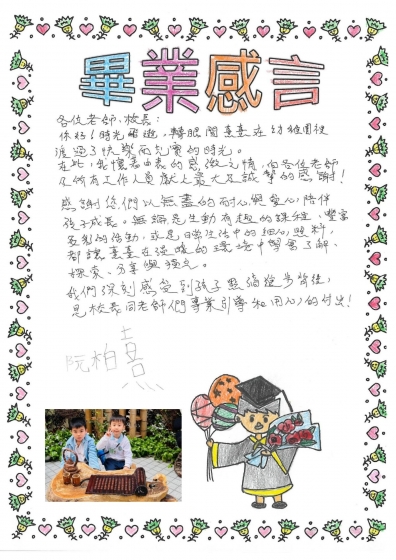 畢業感言
各位老師、校長：
你好！時光飛逝，轉眼間熹熹在幼稚園裡
渡過了快樂而充實的時光。
在此，我懷着由衷的感激之情，向各位老師
及所有工作人員獻上最大及誠摯的感謝！
感謝你們以無盡的耐心與愛心，陪伴
孩子成長。無論是生動有趣的課程、豐富
及彩的活動，或是日常生活中的細心照料，
都讓熹熹在溫暖的環境中學會了解、
探索、分享與獨立。
我們深刻感受到孩子點滴進步背後，
是校長同老師們專業引導和用心的付出！
阮柏熹